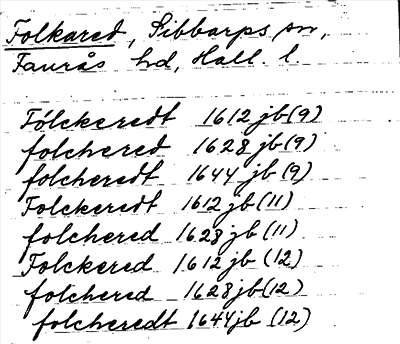 Folkared, Sibbarps sn,
Faurås hd, Hall. l.
Fólckeredt 1612 jb (9)
folchered 1628 jb (9)
folcheredt 1644 jb (9)
Folckeredt 1612 jb (11)
folchered 1628 jb (11)
Folckered 1612 jb (12)
folchered 1628 jb (12)
folcheredt 1644 jb (12)